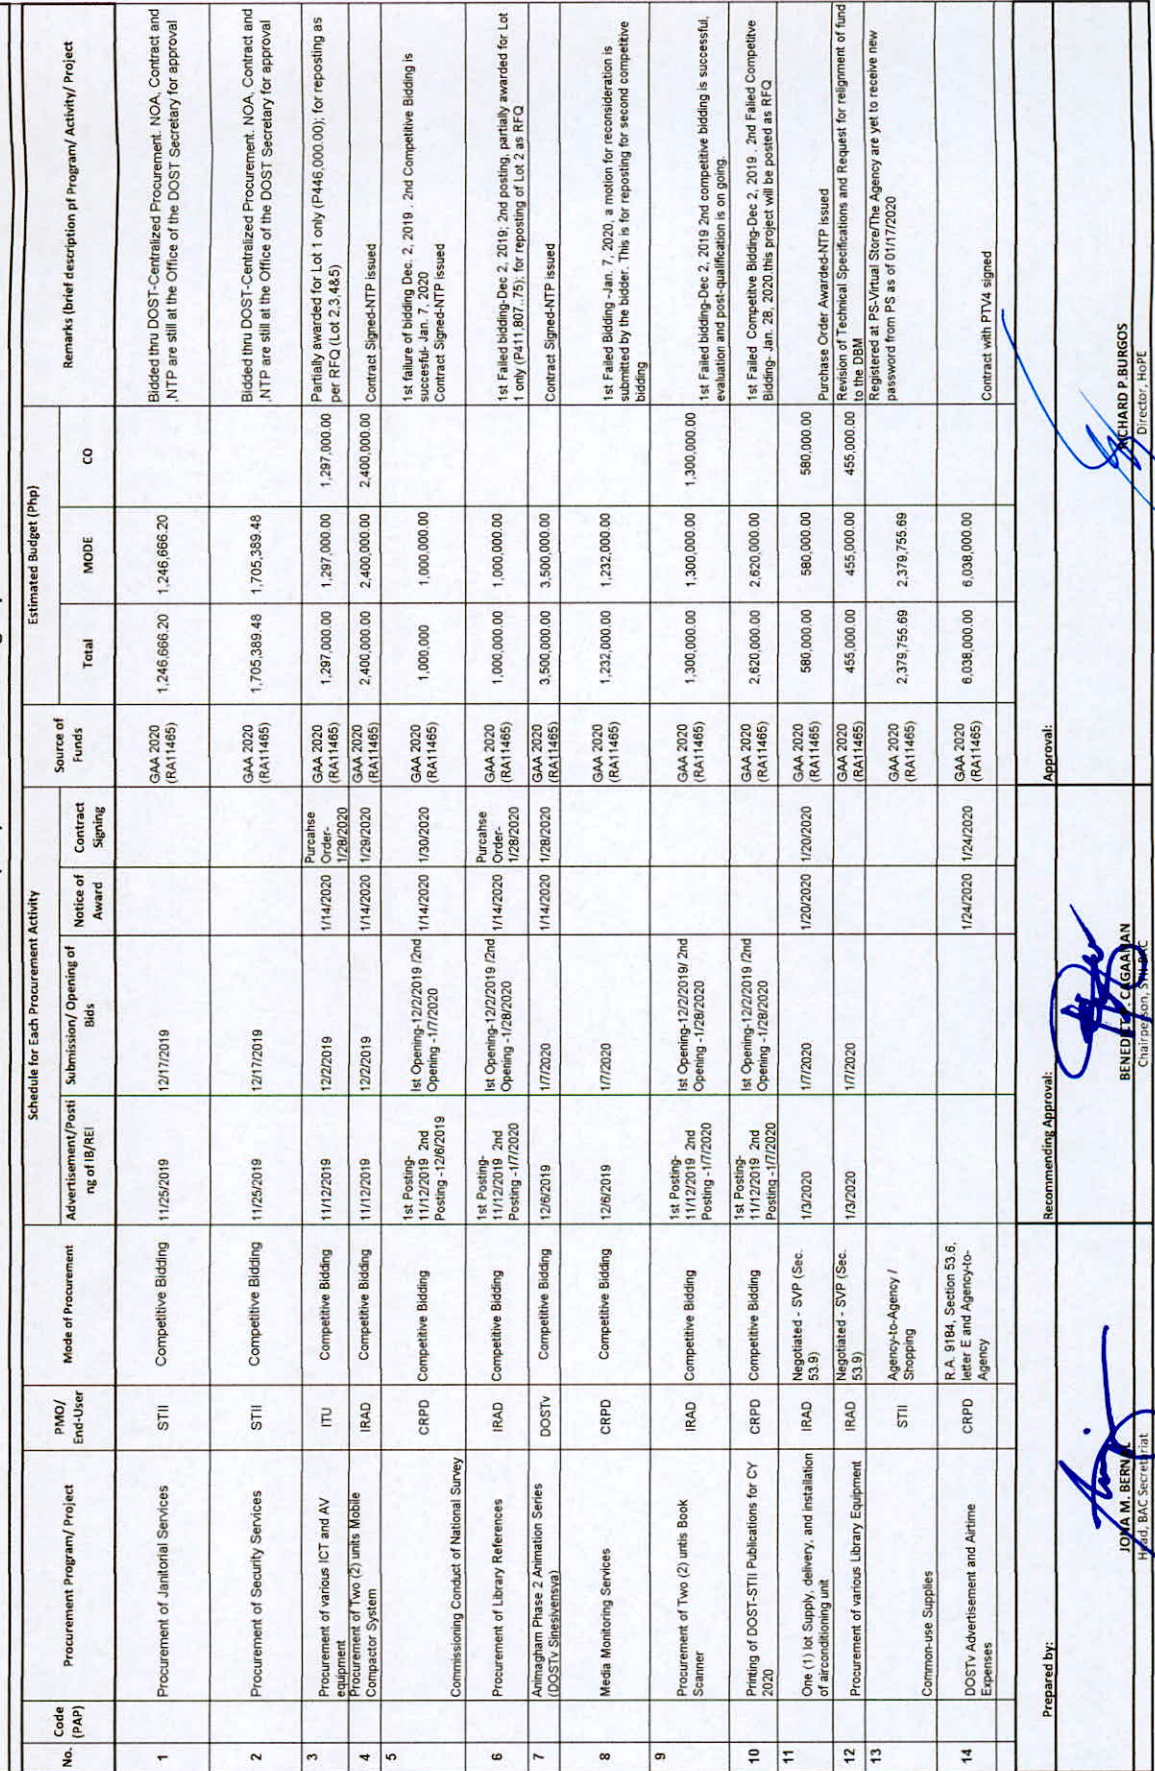 No.
Code (PAP)
Procurement Program/ Project
PMO/ End-User
Mode of Procurement
Schedule for Each Procurement Activity
Advertisement/Posti
ng of IB/REI
Submission/ Opening of
Bids
Notice of
Award
Contract
Signing
Source of
Funds
Estimated Budget (Php)
Total
MODE
CO
Remarks (brief description pf Program/ Activity/ Project
1
Procurement of Janitorial Services
STII
Competitive Bidding
11/25/2019
12/17/2019
GAA 2020
(RA11465)
1,246,666.20
1,246,666.20
Bidded thru DOST-Centralized Procurement. NOA, Contract and
,NTP are still at the Office of the DOST Secretary for approval
2
Procurement of Security Services
STII
Competitive Bidding
11/25/2019
12/17/2019
GAA 2020
(RA11465)
1,705,389.48
1,705,389.48
Bidded thru DOST-Centralized Procurement. NOA, Contract and
,NTP are still at the Office of the DOST Secretary for approval
3
Procurement of various ICT and AV
equipment
ITU
Competitive Bidding
11/12/2019
12/2/2019
1/14/2020
Purcahse
Order-
1/28/2020
GAA 2020
(RA11465)
1,297,000.00
1,297,000.00
1,297,000.00
Partially awarded for Lot 1 only (P446,000.00); for reposting as
per RFQ (Lot 2,3,4&5)
4
Procurement of Two (2) units Mobile
Compactor System
IRAD
Competitive Bidding
11/12/2019
12/2/2019
1/14/2020
1/29/2020
GAA 2020
(RA11465)
2,400,000.00
2,400,000.00
2,400,000.00
Contract Signed-NTP issued
5
Commissioning Conduct of National Survey
CRPD
Competitive Bidding
1st Posting-
11/12/2019 2nd
Posting -12/6/2019
Ist Opening-12/2/2019 /2nd
Opening -1/7/2020
1/14/2020
1/30/2020
GAA 2020
(RA11465)
1,000,000
1,000,000.00
1st failure of bidding Dec. 2, 2019 . 2nd Competitive Bidding is
successful- Jan. 7, 2020
Contract Signed-NTP issued
6
Procurement of Library References
IRAD
Competitive Bidding
1st Posting-
11/12/2019 2nd
Posting -1/7/2020
Ist Opening-12/2/2019 /2nd
Opening -1/28/2020
1/14/2020
Purcahse
Order-
1/28/2020
GAA 2020
(RA11465)
1,000,000.00
1,000,000.00
1st Failed bidding-Dec 2, 2019; 2nd posting, partially awarded for Lot
1 only (P411,807..75); for reposting of Lot 2 as RFQ
7
Animagham Phase 2 Animation Series
(DOSTv Sinesiyensya)
DOSTv
Competitive Bidding
12/6/2019
1/7/2020
1/14/2020
1/28/2020
GAA 2020
(RA11465)
3,500,000.00
3,500,000.00
Contract Signed-NTP issued
8
Media Monitoring Services
CRPD
Competitive Bidding
12/6/2019
1/7/2020
GAA 2020
(RA11465)
1,232,000.00
1,232,000.00
1st Failed Bidding -Jan. 7, 2020, a motion for reconsideration is
submitted by the bidder. This is for reposting for second competitive
bidding
9
Procurement of Two (2) untis Book
Scanner
IRAD
Competitive Bidding
1st Posting-
11/12/2019 2nd
Posting -1/7/2020
Ist Opening-12/2/2019/ 2nd
Opening -1/28/2020
GAA 2020
(RA11465)
1,300,000.00
1,300,000.00
1,300,000.00
1st Failed bidding-Dec 2, 2019 2nd competitive bidding is successful,
evaluation and post-qualification is on going.
10
Printing of DOST-STII Publications for CY
2020
CRPD
Competitive Bidding
1st Posting-
11/12/2019 2nd
Posting -1/7/2020
Ist Opening-12/2/2019 /2nd
Opening -1/28/2020
GAA 2020
(RA11465)
2,620,000.00
2,620,000.00
1st Failed Competitive Bidding-Dec 2, 2019 . 2nd Failed Competitve
Bidding- Jan. 28, 2020.this project will be posted as RFQ
11
One (1) lot Supply, delivery, and installation
of airconditioning unit
IRAD
Negotiated - SVP (Sec.
53.9)
1/3/2020
1/7/2020
1/20/2020
1/20/2020
GAA 2020
(RA11465)
580,000.00
580,000.00
580,000.00
Purchase Order Awarded-NTP Issued
12
Procurement of various Library Equipment
IRAD
Negotiated - SVP (Sec.
53.9)
1/3/2020
1/7/2020
GAA 2020
(RA11465)
455,000.00
455,000.00
455,000.00
Revision of Technical Specifications and Request for relignment of fund
to the DBM
13
Common-use Supplies
STII
Agency-to-Agency /
Shopping
GAA 2020
(RA11465)
2,379,755.69
2,379,755.69
Registered at PS-Virtual Store/The Agency are yet to receive new
password from PS as of 01/17/2020
14
DOSTv Advertisement and Airtime
Expenses
CRPD
R.A. 9184, Section 53.6,
letter E and Agency-to-
Agency
1/24/2020
1/24/2020
GAA 2020
(RA11465)
6,038,000.00
6,038,000.00
Contract with PTV4 signed
Prepared by:
Recommending Approval:
Approval:
M. BERNAL
Head, BAC Secretariat
CAGAANAN
Chairperson, STII-BAC
RICHARD P.BURGOS
Director, HoPE